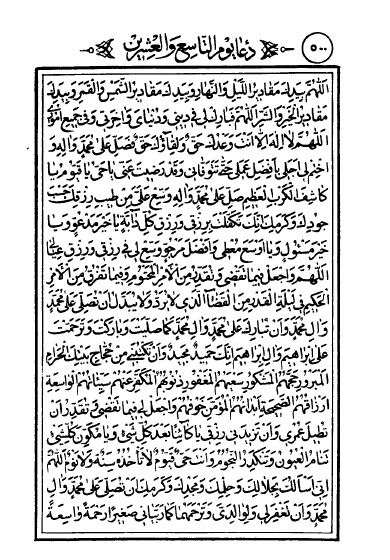 ٥٠٠ دعا يوم التاسع والعشرين
اللهم بيدك مقادير الليل والنهار وبيدك مقادير الشمس والقمر وبيدك
مقادير الخير والشر اللهم فبارك لي في ديني ودنياي واخرتي وفي جميع اموري
اللهم لا اله الا انت وعدك حق ولقاؤك حق فصل على محمد واله و
اختم لي اجلي بافضل عملي حتى تتوفاني وقد رضيت عني يا حي يا قيوم يا
كاشف الكرب العظيم صل على محمد واله ووسع علي من طيب رزقك حسب
جودك وكرمك انك تكفلت برزقي ورزق كل دابة يا خير مدعو ويا
خير مسئول ويا اوسع معطي وافضل مرجو وسع لي في رزقي ورزق عيالي
اللهم واجعل فيما تقضي وتقدر من الامر المحتوم وفيما تفرق من الامر
الحكيم في ليلة القدر من القضاء الذي لا يرد ولا يبدل ان تصلي على محمد
وال محمد وان تبارك على محمد وال محمد كما صليت وباركت وترحمت
على ابراهيم وال ابراهيم انك حميد مجيد وان تكتبني من حجاج بيتك الحرام
المبرور حجهم المشكور سعيهم المغفور ذنوبهم المكفر عنهم سيئاتهم الواسعة
ارزاقهم الصحيحة ابدانهم المؤمن خوفهم واجعل لي فيما تقضي وتقدر ان
تطيل عمري وان تزيد في رزقي يا كائنا بعد كل شئ ويا مكون كل شئ
تنام العيون وتنكدر النجوم وانت حي قيوم لا تأخذه سنة ولا نوم اللهم
اني اسألك بجلالك وحلمك ومجدك وكرمك ان تصلي على محمد وال
محمد وان تغفر لي ولوالدي وترحمهما كما ربياني صغيرا رحمة واسعة